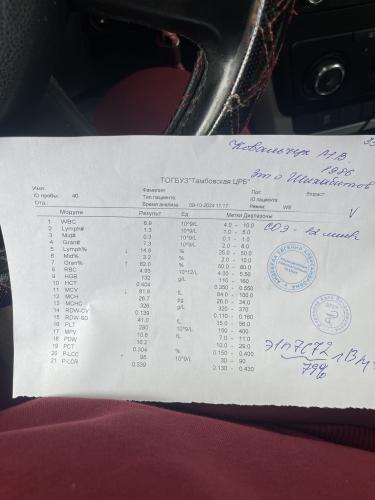 Ковальчук М.В.
1986
ТОГБУЗ"Тамбовская ЦРБ"
это Шихабитов
Имя:
Фамилия:
Пол:
Возраст:
ID пробы: 40
Тип пациента:
ID пациента
Отд.:
Время анализа 09-10-2024 11:17
Режим: WB
V
Модули Результ Ед. Метки Диапазоны
1 WBC 8.9 10^9/L 4.0 - 10.0
2 Lymph# 1.3 10^9/L 1.0 - 5.0
3 Mid# 0.3 10^9/L 0.1 - 1.0
4 Gran# 7.3 10^9/L 2.0 - 8.0
5 Lymph% ↓ 14.8 % 25.0 - 50.0
6 Mid% 3.2 % 2.0 - 10.0
7 Gran% ↑ 82.0 % 50.0 - 80.0
8 RBC 4.93 10^12/L 4.00 - 5.50
9 HGB 132 g/L 110 - 160
10 HCT 0.404 0.350 - 0.550
11 MCV ↓ 81.9 fL 84.0 - 100.0
12 MCH 26.7 pg 26.0 - 34.0
13 MCHC 326 g/L 320 - 370
14 RDW-CV 0.139 0.110 - 0.160
15 RDW-SD 41.0 fL 35.0 - 56.0
16 PLT 280 10^9/L 150 - 400
17 MPV 10.8 fL 7.0 - 11.0
18 PDW 16.2 10.0 - 29.0
19 PCT 0.304 % 0.150 - 0.400
20 P-LCC ↑ 95 10^9/L 30 - 90
21 P-LCR 0.339 0.130 - 0.430
СОЭ-
Э1п7с72